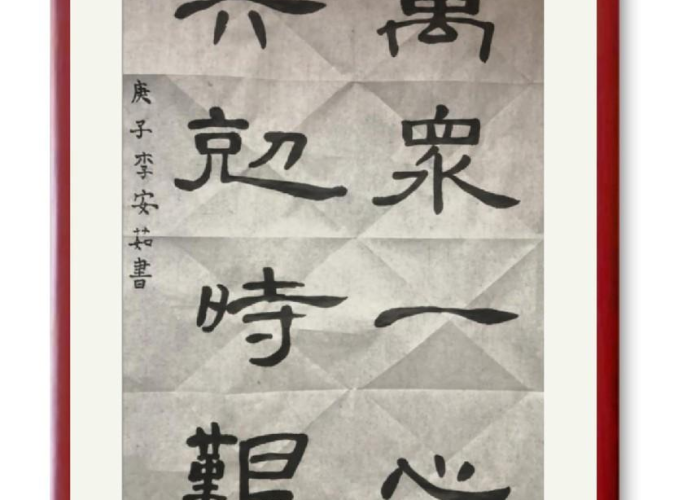 萬眾一心
共剋時艱
庚子李安茹書